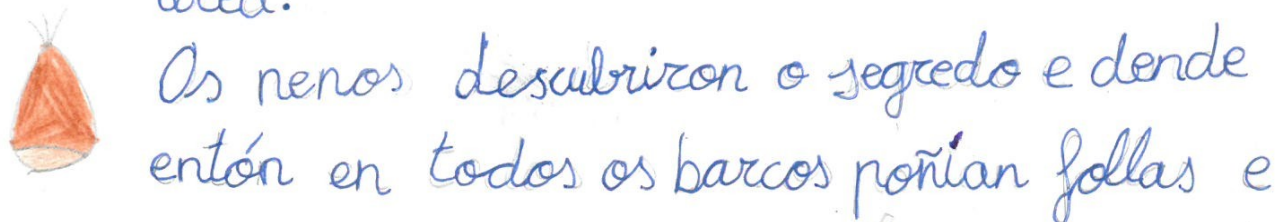 Os nenos descubriron o segredo e dende
entón en todos os barcos poñían follas e